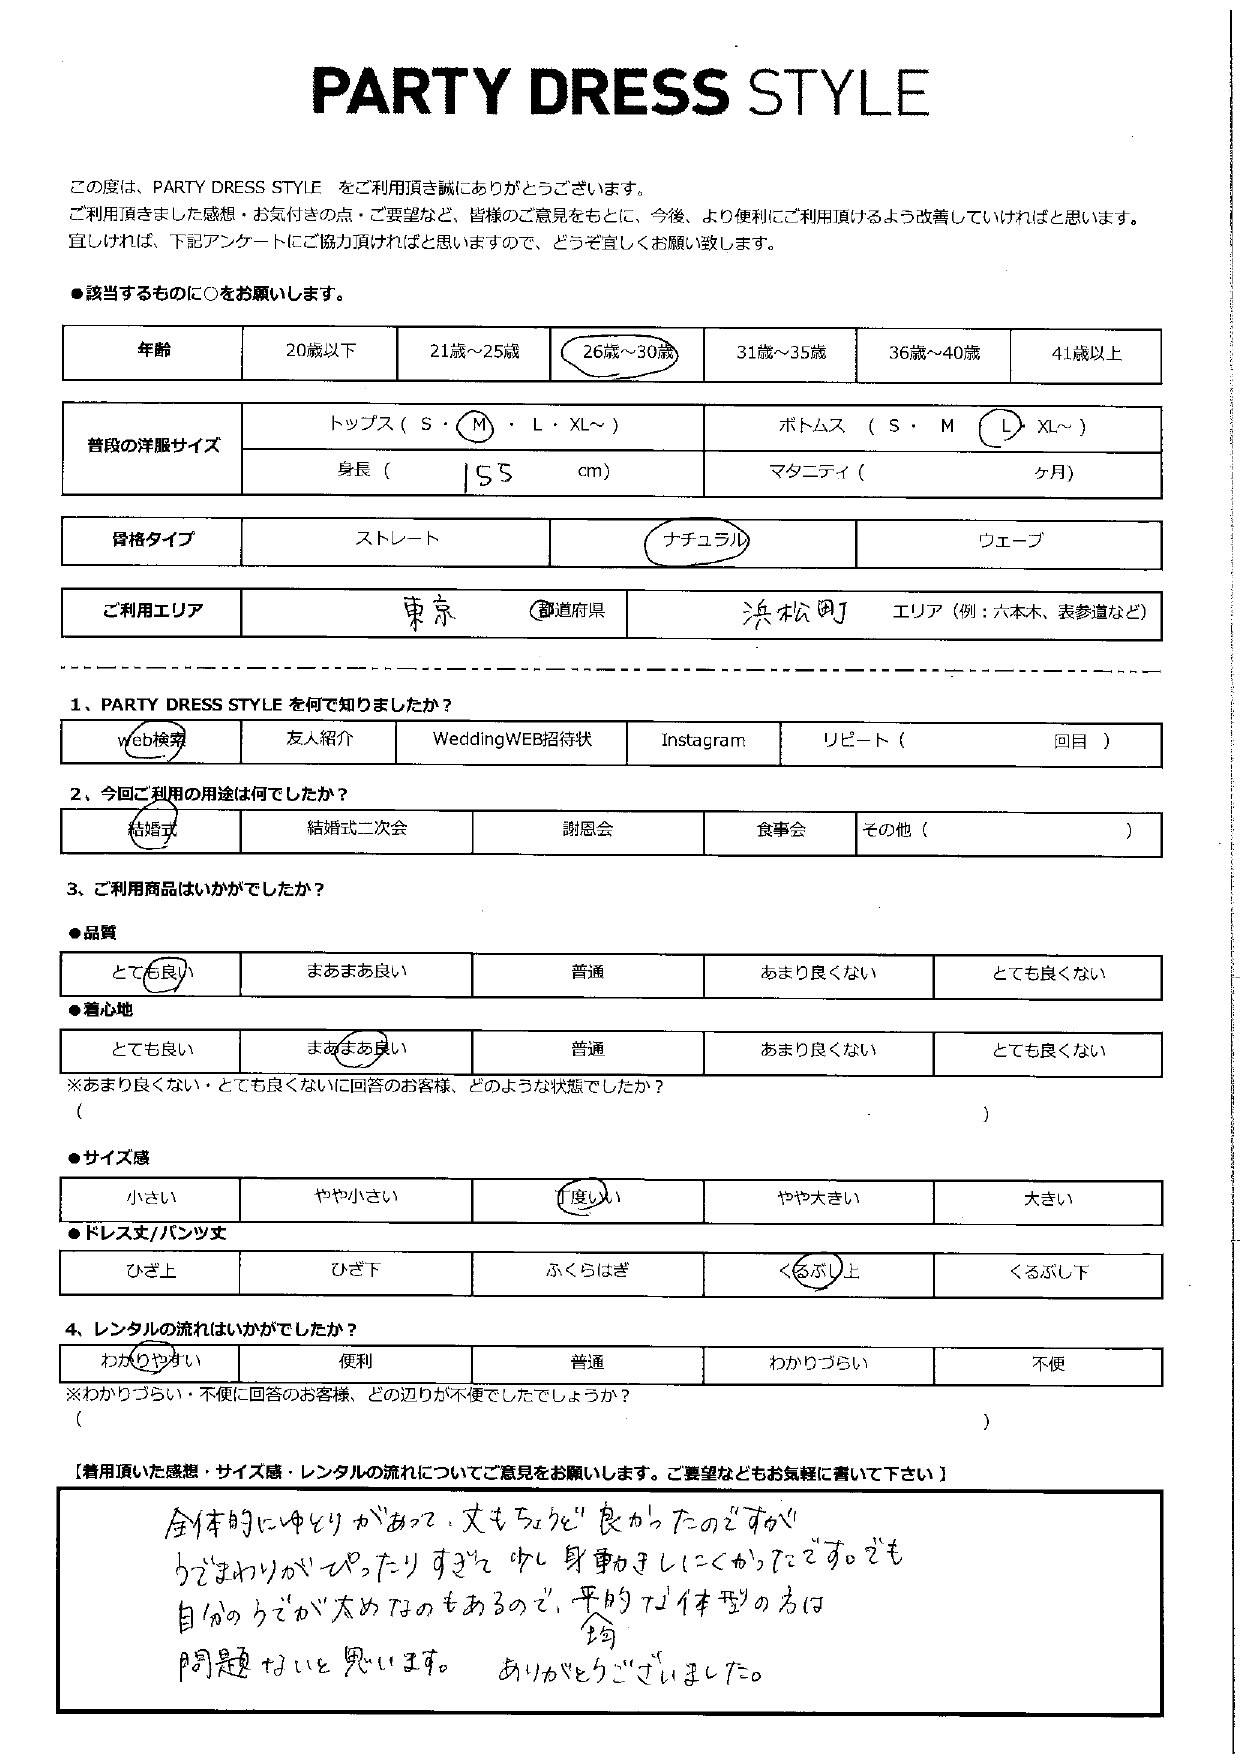 PARTY DRESS STYLE
この度は、PARTY DRESS STYLE をご利用頂き誠にありがとうございます。
ご利用頂きました感想・お気付きの点・ご要望など、皆様のご意見をもとに、今後、より便利にご利用頂けるよう改善していければと思います。
宜しければ、下記アンケートにご協力頂ければと思いますので、どうぞ宜しくお願い致します。
●該当するものに○をお願いします。
年齢 20歳以下 21歳～25歳 26歳～30歳 31歳～35歳 36歳～40歳 41歳以上
普段の洋服サイズ トップス ( S ・ M ・ L ・ XL～ ) ボトムス ( S ・ M L ・ XL～ )
身長 ( 155 cm) マタニティ ( ヶ月)
骨格タイプ ストレート ナチュラル ウェーブ
ご利用エリア 東京 都道府県 浜松町 エリア（例：六本木、表参道など）
1、PARTY DRESS STYLE を何で知りましたか？
web検索 友人紹介 WeddingWEB招待状 Instagram リピート ( 回目 )
2、今回ご利用の用途は何でしたか？
結婚式 結婚式二次会 謝恩会 食事会 その他 ( )
3、ご利用商品はいかがでしたか？
●品質
とても良い まあまあ良い 普通 あまり良くない とても良くない
●着心地
とても良い まあまあ良い 普通 あまり良くない とても良くない
※あまり良くない・とても良くないに回答のお客様、どのような状態でしたか？
( )
●サイズ感
小さい やや小さい 丁度いい やや大きい 大きい
●ドレス丈/パンツ丈
ひざ上 ひざ下 ふくらはぎ くるぶし上 くるぶし下
4、レンタルの流れはいかがでしたか？
わかりやすい 便利 普通 わかりづらい 不便
※わかりづらい・不便に回答のお客様、どの辺りが不便でしたでしょうか？
( )
【着用頂いた感想・サイズ感・レンタルの流れについてご意見をお願いします。ご要望などもお気軽に書いて下さい】
全体的にゆとりがあって、丈もちょうど良かったのですが
うでまわりがぴったりすぎて少し身動きしにくかったです。でも
自分のうでが太めなのもあるので、平均的な体型の方は
問題ないと思います。 ありがとうございました。